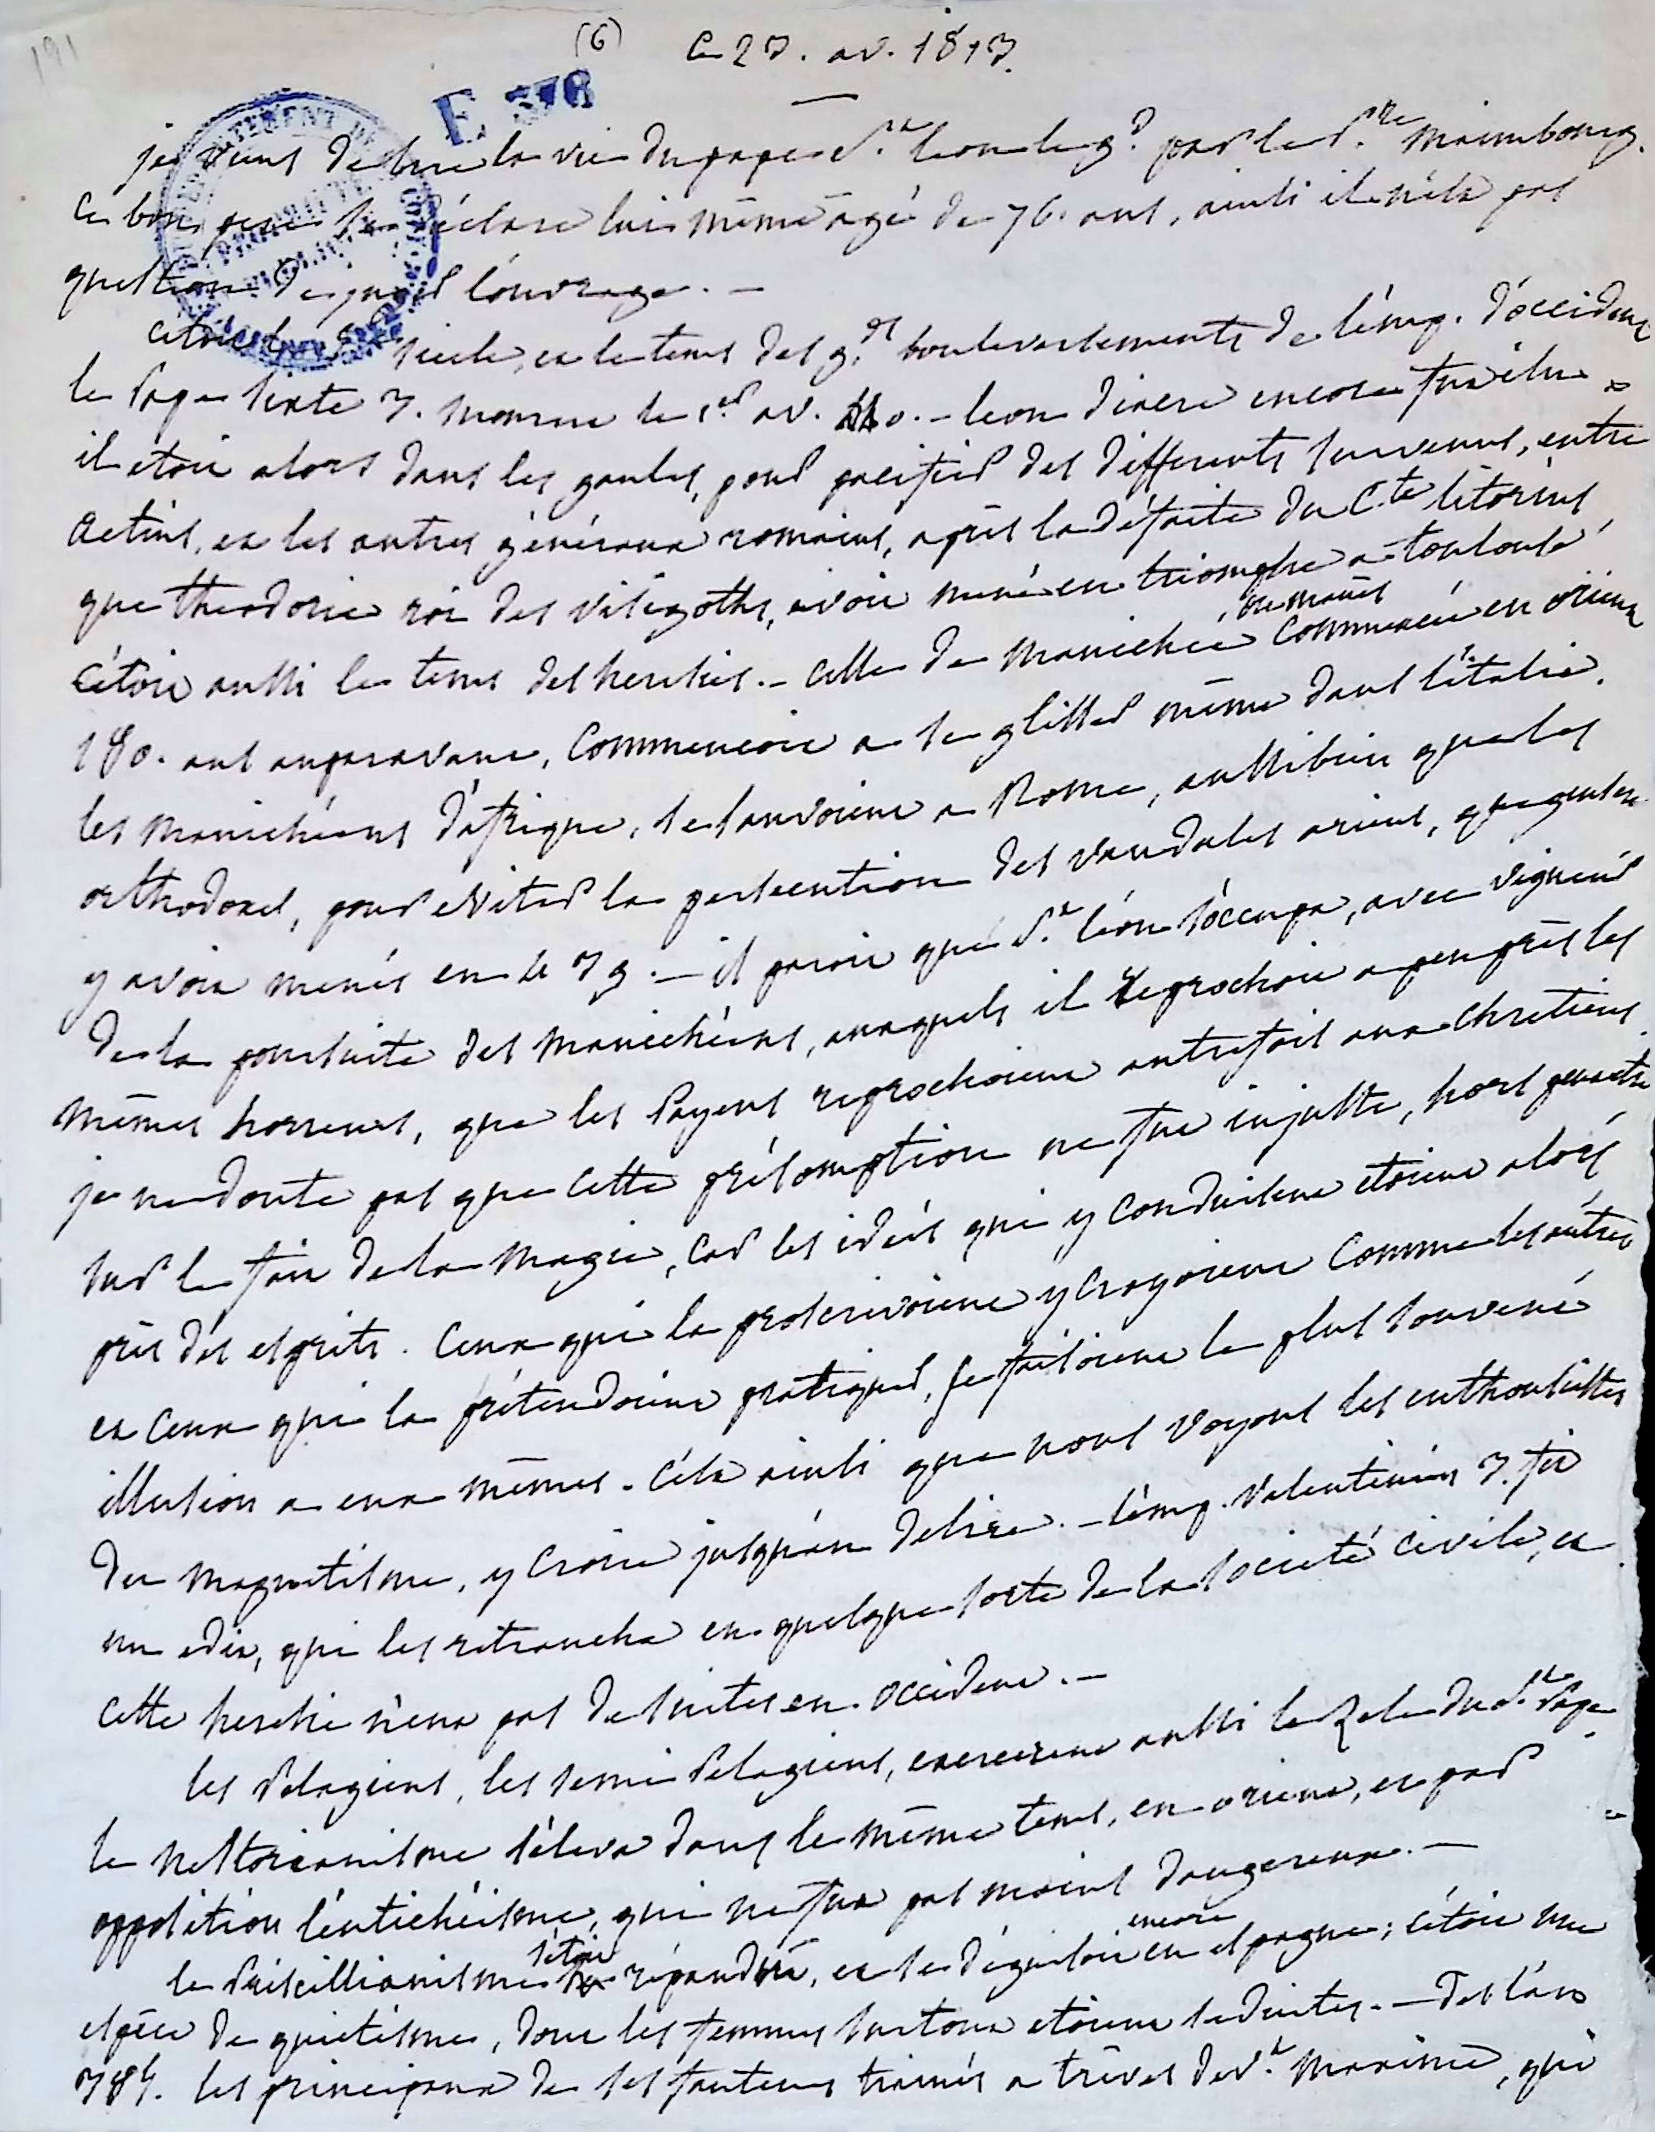 191
(6) Ce 27. av. 1813.
E 378
je viens de lire la vie du pape St. leon le gd. par le Pre maimbourg.
Ce bon pere se déclare lui même agé de 76. ans, ainsi il n'est pas
question de juger l'ouvrage. —
C'étoit le 5e siecle, et le tems des gds bouleversements de l'emp. d'occident
le Pape sixte 3. mourut le 1er av. 440. — leon diacre encore fut élu
il etoit alors dans les gaules, pour pacifier des differents survenus, entre
Aetius, et les autres généraux romains, après la défaite du Cte litorius
que théodoric roi des visigoths, avoit mené en triomphe a toulouse
C'étoit aussi le tems des heresies. — celle de manichée, ou manès commencée en orient
180. ans auparavant, commencoit a se glisser même dans l'italie.
les manichéens d'afrique, se sauvoient a Rome, aussi bien que les
orthodoxes, pour eviter la persecution des vandales ariens, que genseric
y avoit menés en 439. — il paroit que St. léon s'occupa, avec vigueur
de la poursuite des manichéens, auxquels il reprochoit a peu près les
mêmes horreurs, que les Payens reprochoient autrefois aux chretiens.
je ne doute pas que cette présomption ne fut injuste, hors peut etre
sur le fait de la magie, car les idées qui y conduisent etoient alors
près des esprits. Ceux qui la proscrivoient y croyoient comme les autres
et ceux qui la prétendoient pratiquer, se faisoient le plus souvent
illusion a eux mêmes. C'est ainsi que nous voyons les enthousiastes
du magnetisme, y croire jusqu'au delire. — l'emp. valentinien 3. fit
un edit, qui les retrancha en quelque sorte de la société civile, et
cette heresie n'eut pas de suites en occident. —
les Pelagiens, les semi Pelagiens, exercerent aussi le zele du St. Pape
le nestorianisme s'éleva dans le même tems, en orient, et par
opposition l'eutichéisme, qui ne fut pas moins dangereux. —
le Priscillianisme s'étoit répandu, et se déguisoit encore en espagne; c'étoit une
espèce de quietisme, dont les femmes surtout etoient seduites. — Dès l'an
384. les principaux de ses fauteurs trainés a trèves devt. maxime, qui